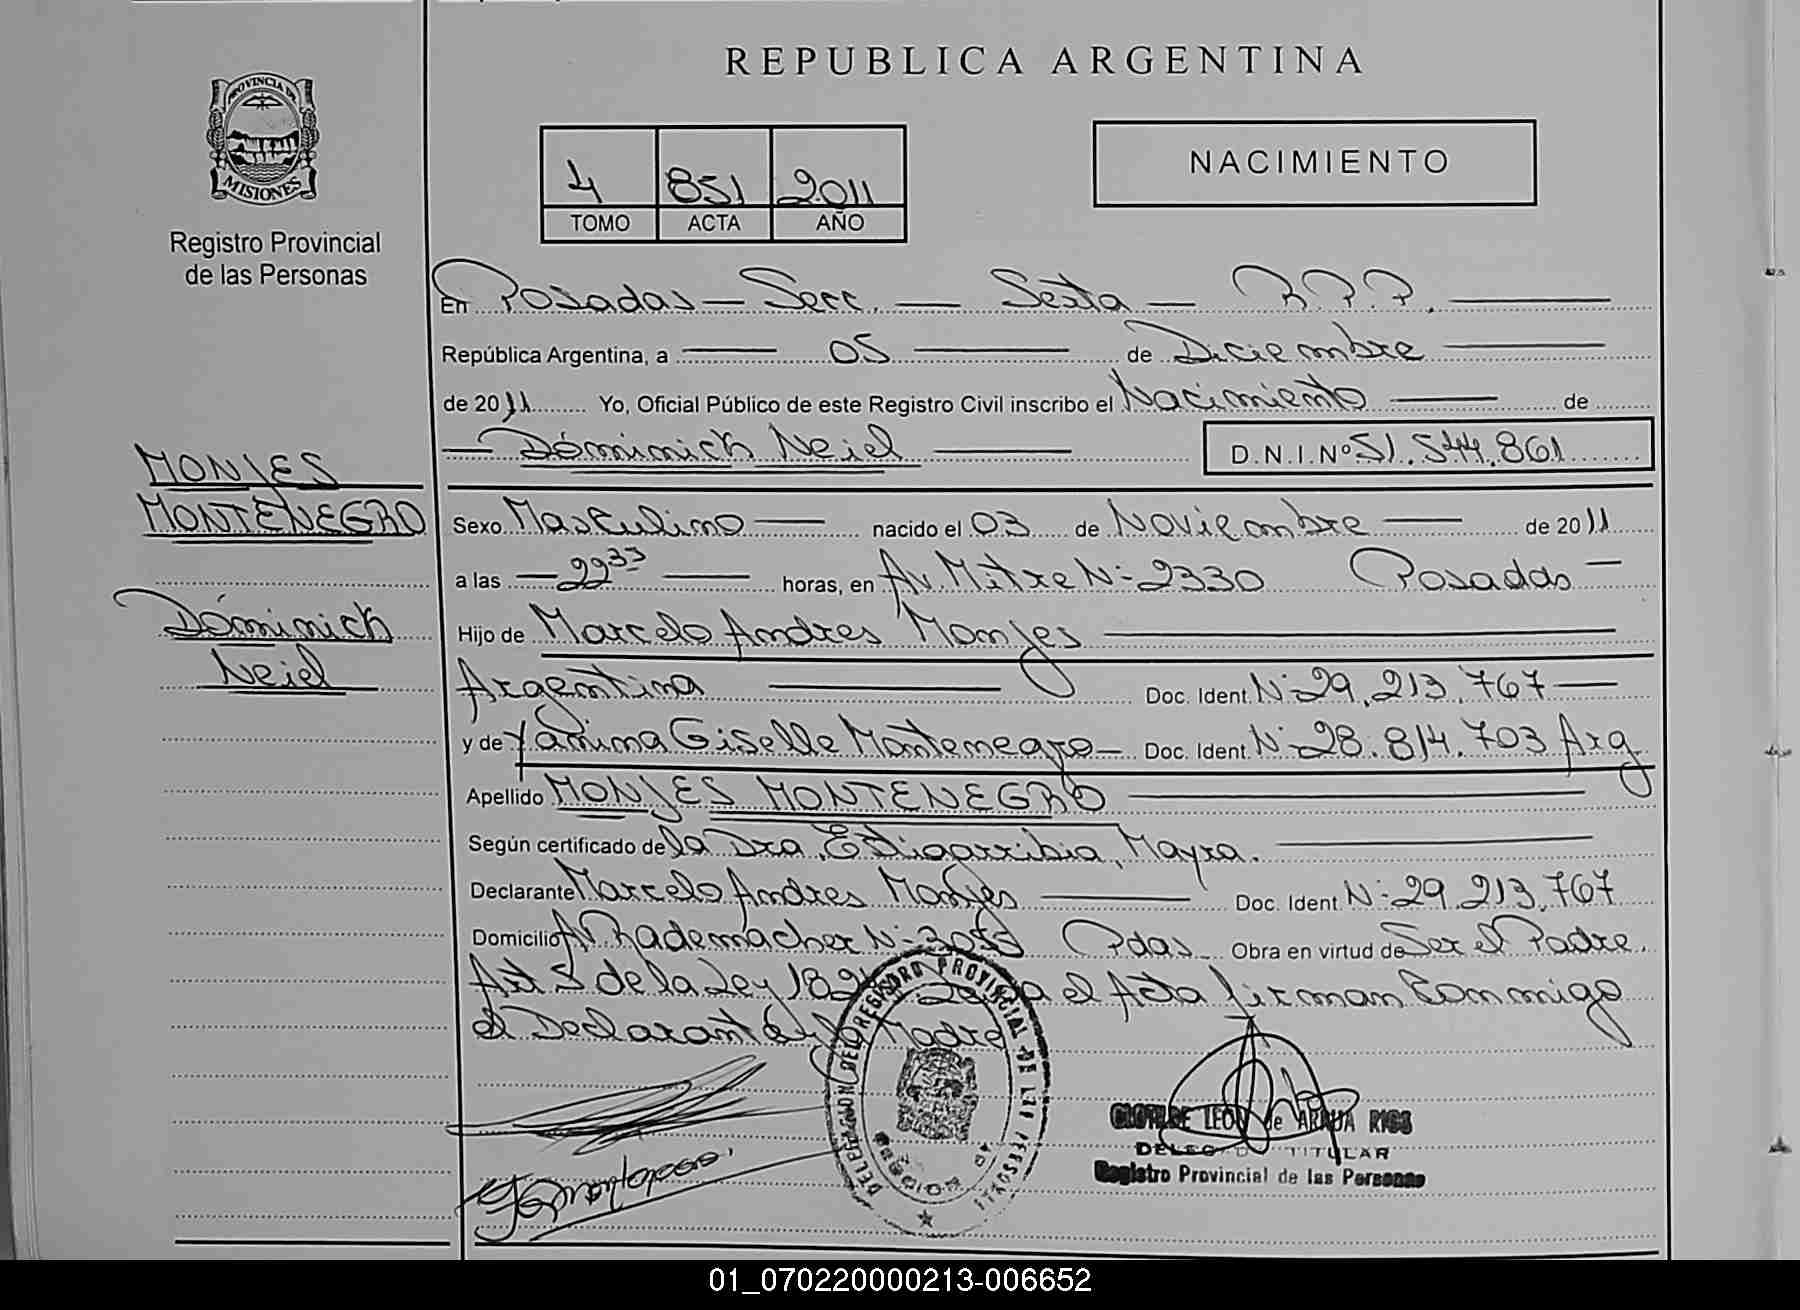 REPUBLICA ARGENTINA
PROVINCIA DE
MISIONES
Registro Provincial
de las Personas
4 851 2011
TOMO ACTA AÑO
NACIMIENTO
En Posadas - Secc. - Sexta - R.P.P.
República Argentina, a 05 de Diciembre
de 2011 Yo, Oficial Público de este Registro Civil inscribo el Nacimiento de
Dóminich Neiel D.N.I.Nº 51.544.861
MONJES
MONTENEGRO
Dóminich
Neiel
Sexo Masculino nacido el 03 de Noviembre de 2011
a las 22 33 horas, en Av. Mitre Nº 2330 Posadas
Hijo de Marcelo Andres Monjes
Argentina Doc. Ident. Nº 29.213.767
y de Yanina Giselle Montenegro Doc. Ident. Nº 28.814.703 Arg
Apellido MONJES MONTENEGRO
Según certificado de la Dra. Estigarribia, Mayra.
Declarante Marcelo Andres Monjes Doc. Ident. Nº 29.213.767
Domicilio Av Rademacher Nº Pdas Obra en virtud de Ser el Padre.
Art 5 de la Ley el Acta firman Conmigo
el Declarante y la Madre
DELEGACION DEL REGISTRO PROVINCIAL DE LAS PERSONAS
CLOTILDE LEON de ARRUA RIOS
DELEGADO TITULAR
Registro Provincial de las Personas
01_070220000213-006652